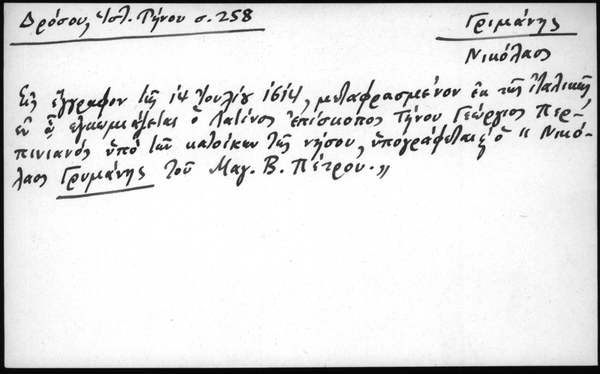 Δρόσου, Ἱστ. Τήνου σ. 258
Γριμάνης
Νικόλαος
Εἰς ἔγγραφον τῆς 14 Ἰουλίου 1614, μεταφρασμένον ἐκ τῆς ἰταλικῆς
ἐν ᾧ ἐγκωμιάζεται ὁ Λατῖνος ἐπίσκοπος Τήνου Γεώργιος Περ-
πινιανός ὑπό τῶν κατοίκων τῆς νήσου, ὑπογράφεται ὁ "Νικό-
λαος Γρυμάνης τοῦ Μαγ. Β. Πέτρου."